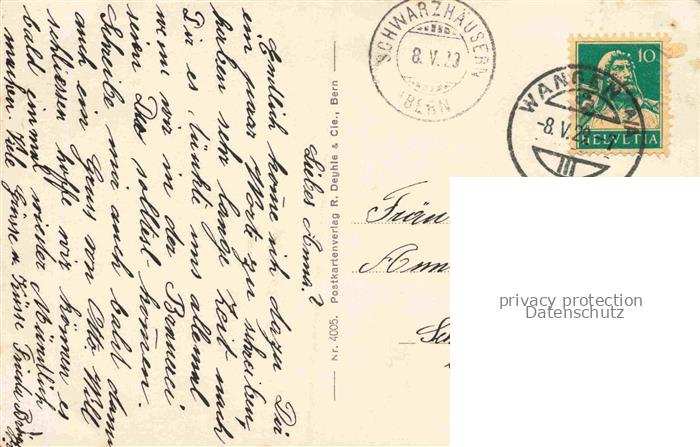 Liebes Anna?
Endlich kome ich dazu Dir
ein paar Worte zu schreiben,
haben sehr lange Zeit nach
Dir es tünkt uns allemal
wenn wir in der
seien Du solltest komen.
Schreibe mir auch bald dann
auch ein Gruss von Otto Will
schliessen hoffe wir können es
bald einmal wieder Mündlich
machen. Viele Grüsse u. Küsse Frieda
Nr. 4005. Postkartenverlag R. Deyhle & Cie., Bern
SCHWARZHÄUSERN
8. V. 23
(BERN)
WANGEN A/A
-8. V. 2
III
10
HELVETIA
Fräu
Ann
Sch
privacy protection
Datenschutz